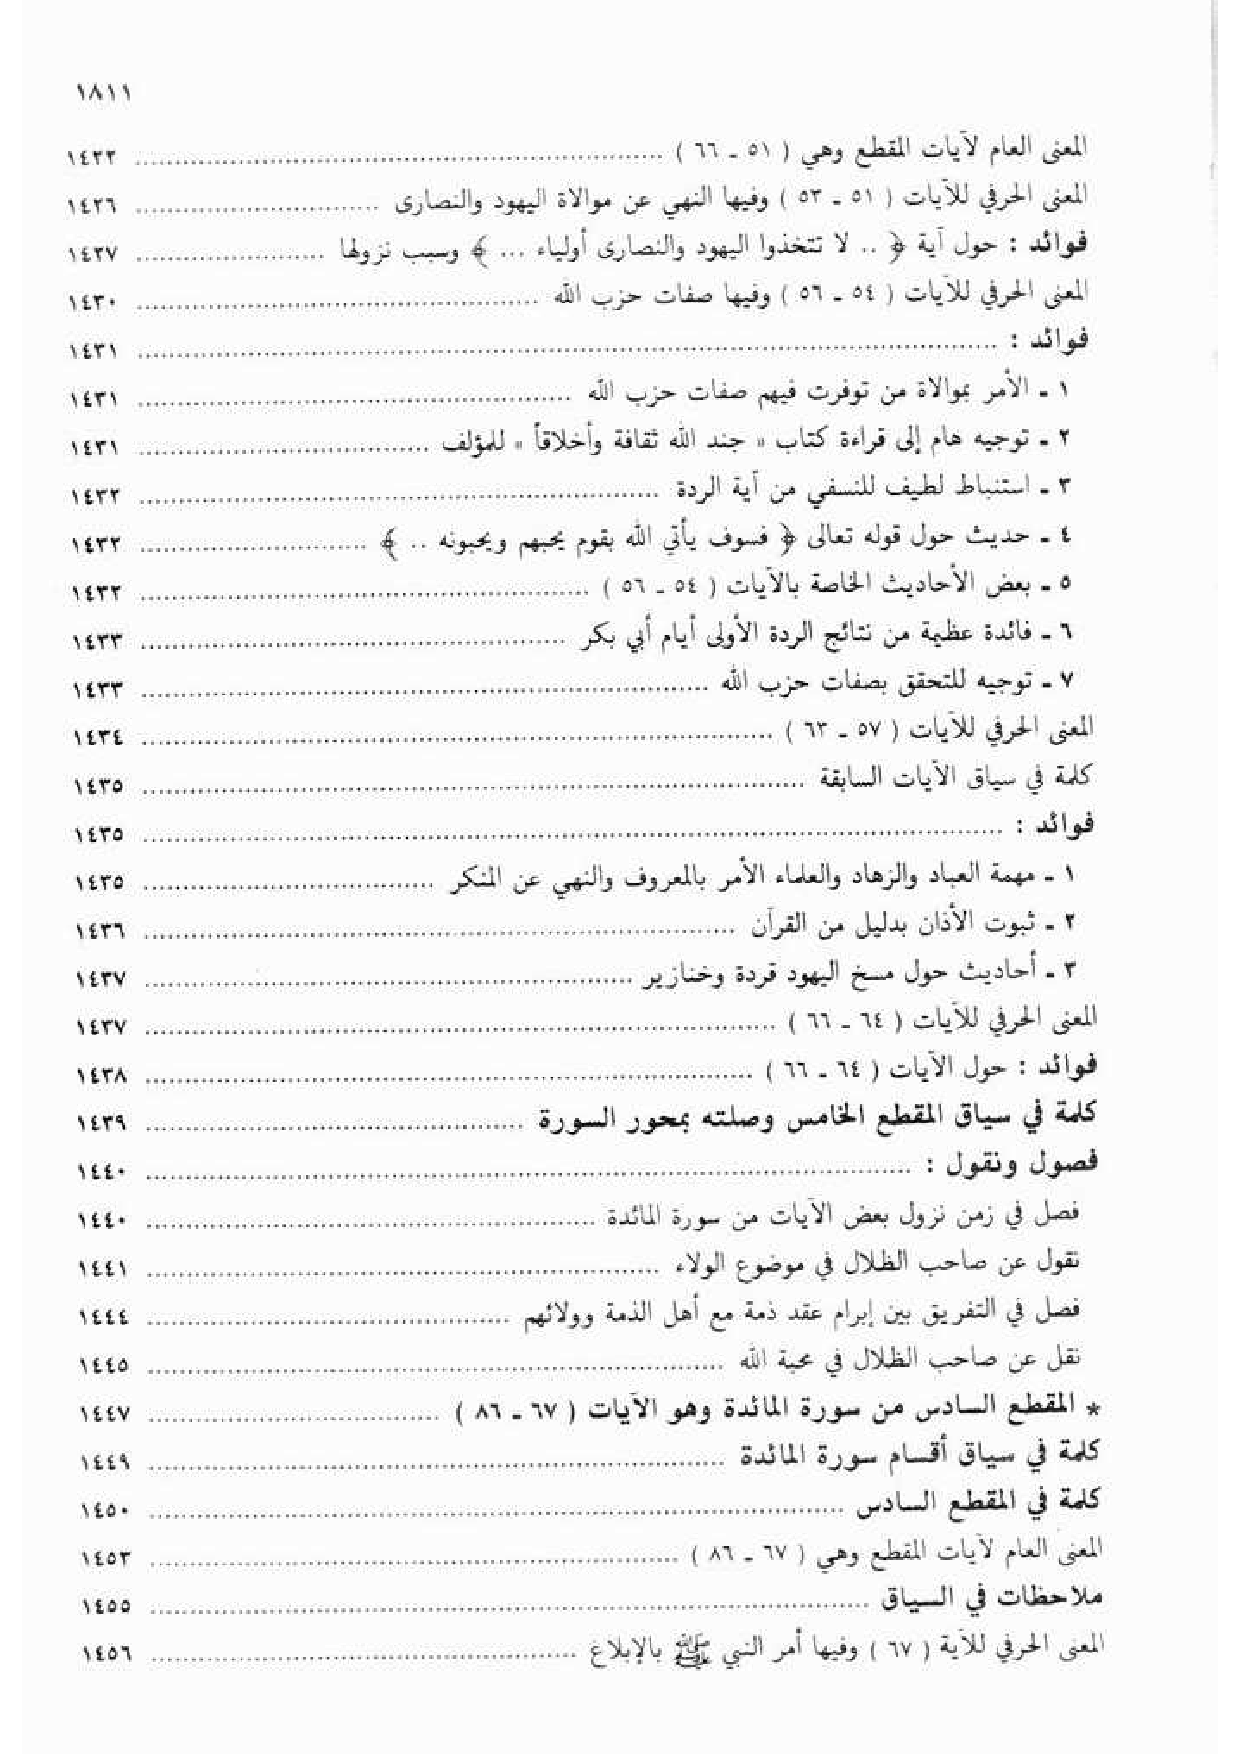 ١٨١١
المعنى العام لآيات المقطع وهي ( ٥١ ـ ٦٦ ) ........ ١٤٢٣
المعنى الحرفي للآيات ( ٥١ ـ ٥٣ ) وفيها النهي عن موالاة اليهود والنصارى ........ ١٤٢٦
فوائد : حول آية ﴿ .. لا تتخذوا اليهود والنصارى أولياء ... ﴾ وسبب نزولها ........ ١٤٢٧
المعنى الحرفي للآيات ( ٥٤ ـ ٥٦ ) وفيها صفات حزب الله ........ ١٤٣٠
فوائد : ........ ١٤٣١
١ ـ الأمر بموالاة من توفرت فيهم صفات حزب الله ........ ١٤٣١
٢ ـ توجيه هام إلى قراءة كتاب « جند الله ثقافة وأخلاقاً » للمؤلف ........ ١٤٣١
٣ ـ استنباط لطيف للنسفي من آية الردة ........ ١٤٣٢
٤ ـ حديث حول قوله تعالى ﴿ فسوف يأتي الله بقوم يحبهم ويحبونه .. ﴾ ........ ١٤٣٢
٥ ـ بعض الأحاديث الخاصة بالآيات ( ٥٤ ـ ٥٦ ) ........ ١٤٣٢
٦ ـ فائدة عظيمة من نتائج الردة الأولى أيام أبي بكر ........ ١٤٣٣
٧ ـ توجيه للتحقق بصفات حزب الله ........ ١٤٣٣
المعنى الحرفي للآيات ( ٥٧ ـ ٦٣ ) ........ ١٤٣٤
كلمة في سياق الآيات السابقة ........ ١٤٣٥
فوائد : ........ ١٤٣٥
١ ـ مهمة العباد والزهاد والعلماء الأمر بالمعروف والنهي عن المنكر ........ ١٤٣٥
٢ ـ ثبوت الأذان بدليل من القرآن ........ ١٤٣٦
٣ ـ أحاديث حول مسخ اليهود قردة وخنازير ........ ١٤٣٧
المعنى الحرفي للآيات ( ٦٤ ـ ٦٦ ) ........ ١٤٣٧
فوائد : حول الآيات ( ٦٤ ـ ٦٦ ) ........ ١٤٣٨
كلمة في سياق المقطع الخامس وصلته بمحور السورة ........ ١٤٣٩
فصول ونقول : ........ ١٤٤٠
فصل في زمن نزول بعض الآيات من سورة المائدة ........ ١٤٤٠
نقول عن صاحب الظلال في موضوع الولاء ........ ١٤٤١
فصل في التفريق بين إبرام عقد ذمة مع أهل الذمة وولائهم ........ ١٤٤٤
نقل عن صاحب الظلال في محبة الله ........ ١٤٤٥
* المقطع السادس من سورة المائدة وهو الآيات ( ٦٧ ـ ٨٦ ) ........ ١٤٤٧
كلمة في سياق أقسام سورة المائدة ........ ١٤٤٩
كلمة في المقطع السادس ........ ١٤٥٠
المعنى العام لآيات المقطع وهي ( ٦٧ ـ ٨٦ ) ........ ١٤٥٣
ملاحظات في السياق ........ ١٤٥٥
المعنى الحرفي للآية ( ٦٧ ) وفيها أمر النبي ﷺ بالإبلاغ ........ ١٤٥٦